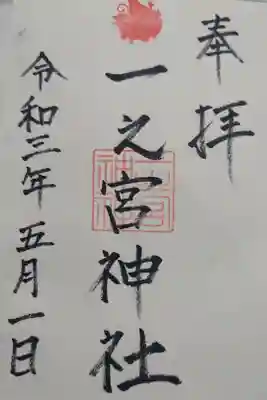 奉拝
一之宮神社
令和三年五月一日